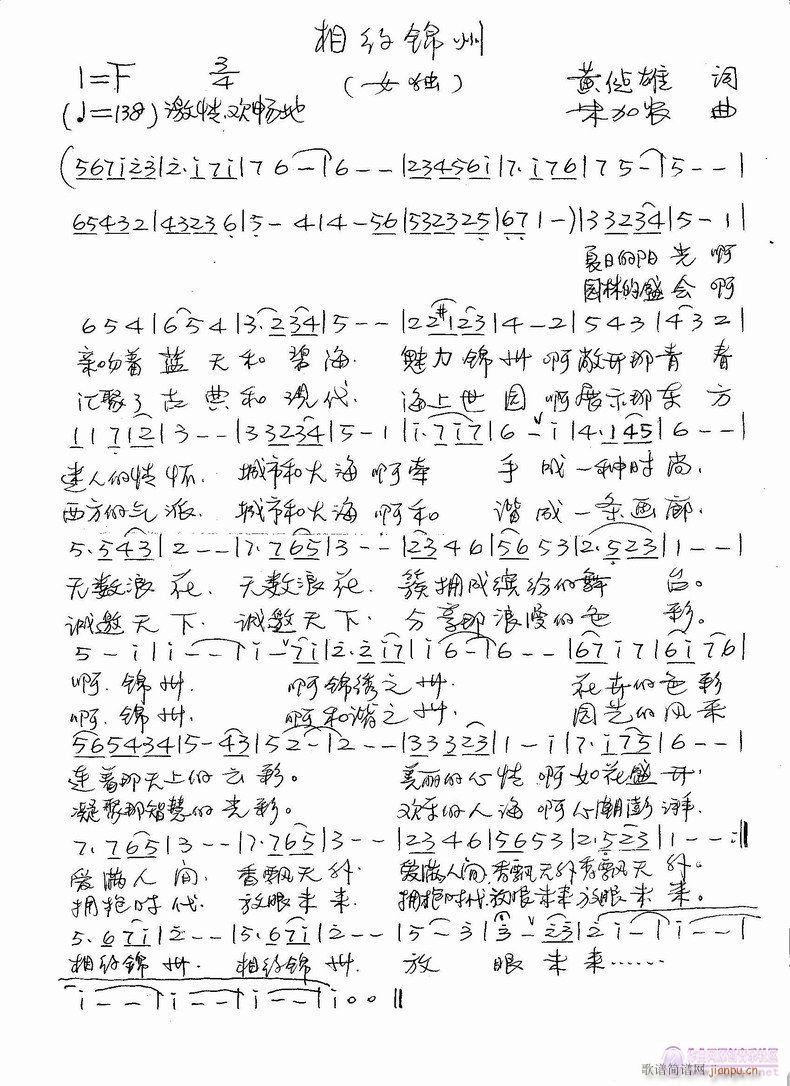 相约锦州
1=F 3/4 (女独) 黄 雄 词
(♩=138) 激情、欢畅地 朱加农 曲
(567i23|2·i7i|76-|6--|23456i|7·i76|75-|5--|
65432|43236|5-4|4-56|532325|671-)|33234|5-1|
夏日的阳光啊
园林的盛会啊
654|654|3·234|5--|22#123|4-2|543|432|
亲吻着蓝天和碧海. 魅力锦州啊敞开那青春
汇聚了古典和现代. 海上世园啊展示那东方
11712|3--|33234|5-1|i·7i7|6-i|4·145|6--|
迷人的情怀. 城市和大海啊牵手成一种时尚.
西方的气派. 城市和大海啊和谐成一条画廊.
5·543|2--|7·765|3--|2346|5653|2·523|1--|
无数浪花. 无数浪花. 簇拥成缤纷的舞台。
诚邀天下. 诚邀天下. 分享那浪漫的色彩。
5-i|i--|i-7i|2·2i7|i6-|6--|67i7|6i76|
啊.锦州. 啊锦绣之州. 花卉的色彩
啊.锦州. 啊和谐之州. 园艺的风采
565434|5-43|52-|2--|33323|1-i|7·i75|6--|
连着那天上的云彩。 美丽的心情啊如花盛开.
凝聚那智慧的光彩。 欢乐的人海啊心潮澎湃.
7·765|3--|7·765|3--|2346|5653|2·523|1--:‖
爱满人间. 香飘天外. 爱满人间.香飘天外香飘天外。
拥抱时代. 放眼未来. 拥抱时代.放眼未来放眼未来。
5·67i|2--|5·67i|2--|5-3|3-23|2i-|i--|
相约锦州. 相约锦州. 放眼未来……
i--|i--|i--|i00‖
歌谱简谱网 jianpu.cn